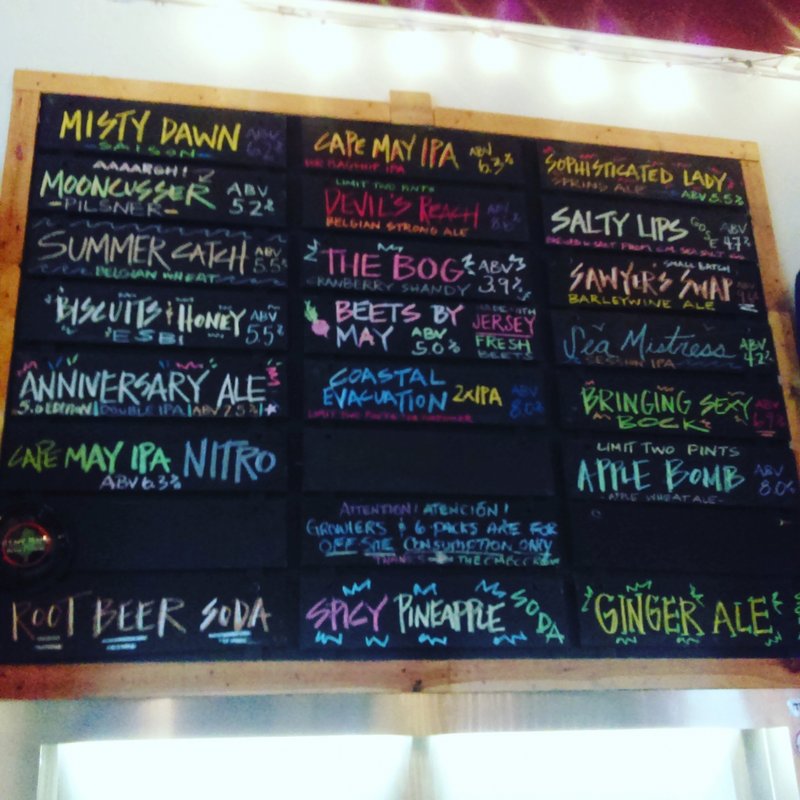 MISTY DAWN ABV 6.2%
SAISON
AAAARGH!
MOONCUSSER ABV 5.2%
-PILSNER-
SUMMER CATCH ABV 5.5%
BELGIAN WHEAT
BISCUITS & HONEY ABV 5.5%
ESB
ANNIVERSARY ALE
5.0 EDITION | DOUBLE IPA | ABV 7.5%
CAPE MAY IPA NITRO
ABV 6.3%
ROOT BEER SODA
CAPE MAY IPA ABV 6.3%
OUR FLAGSHIP IPA
LIMIT TWO PINTS
DEVIL'S REACH ABV
BELGIAN STRONG ALE
THE BOG ABV 3.9%
CRANBERRY SHANDY
BEETS BY MAY ABV 5.0%
MADE WITH JERSEY FRESH BEETS
COASTAL EVACUATION 2XIPA ABV 8.0%
LIMIT TWO PINTS PER CUSTOMER
ATTENTION! ATENCIÓN!
GROWLERS & 6 PACKS ARE FOR
OFF-SITE CONSUMPTION ONLY
THANKS THE CMBC CREW
SPICY PINEAPPLE SODA
SOPHISTICATED LADY
SPRING ALE ABV 5.5%
SALTY LIPS GOSE 4.7%
SMALL BATCH
SAWYER'S SWAP
BARLEYWINE ALE
SEA MISTRESS ABV 4.2%
SESSION IPA
BRINGING SEXY BOCK ABV 6.9%
LIMIT TWO PINTS
APPLE BOMB ABV 8.0%
-APPLE WHEAT ALE-
GINGER ALE